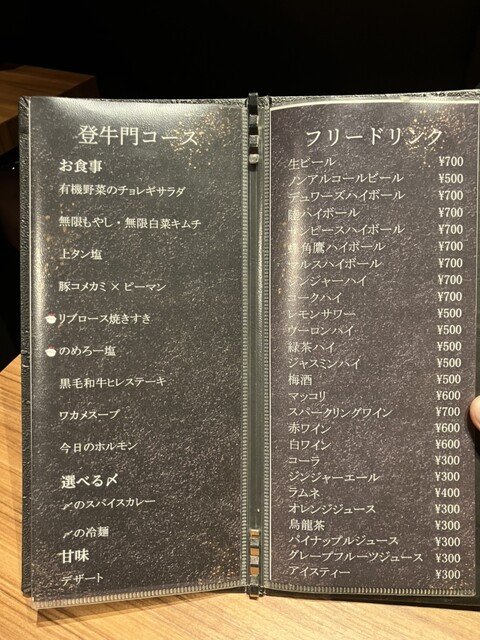 登牛門コース
お食事
有機野菜のチョレギサラダ
無限もやし・無限白菜キムチ
上タン塩
豚コメカミ×ピーマン
リブロース焼きすき
のめろー塩
黒毛和牛ヒレステーキ
ワカメスープ
今日のホルモン
選べる〆
〆のスパイスカレー
〆の冷麺
甘味
デザート
フリードリンク
生ビール ¥700
ノンアルコールビール ¥500
デュワーズハイボール ¥700
陸ハイボール ¥700
サンピースハイボール ¥700
角鷹ハイボール ¥700
ハイボール ¥700
ジンジャーハイ ¥700
コークハイ ¥700
レモンサワー ¥500
ウーロンハイ ¥500
緑茶ハイ ¥500
ジャスミンハイ ¥500
梅酒 ¥500
マッコリ ¥600
スパークリングワイン ¥700
赤ワイン ¥600
白ワイン ¥600
コーラ ¥300
ジンジャーエール ¥300
ラムネ ¥400
オレンジジュース ¥300
烏龍茶 ¥300
パイナップルジュース ¥300
グレープフルーツジュース ¥300
アイスティー ¥300